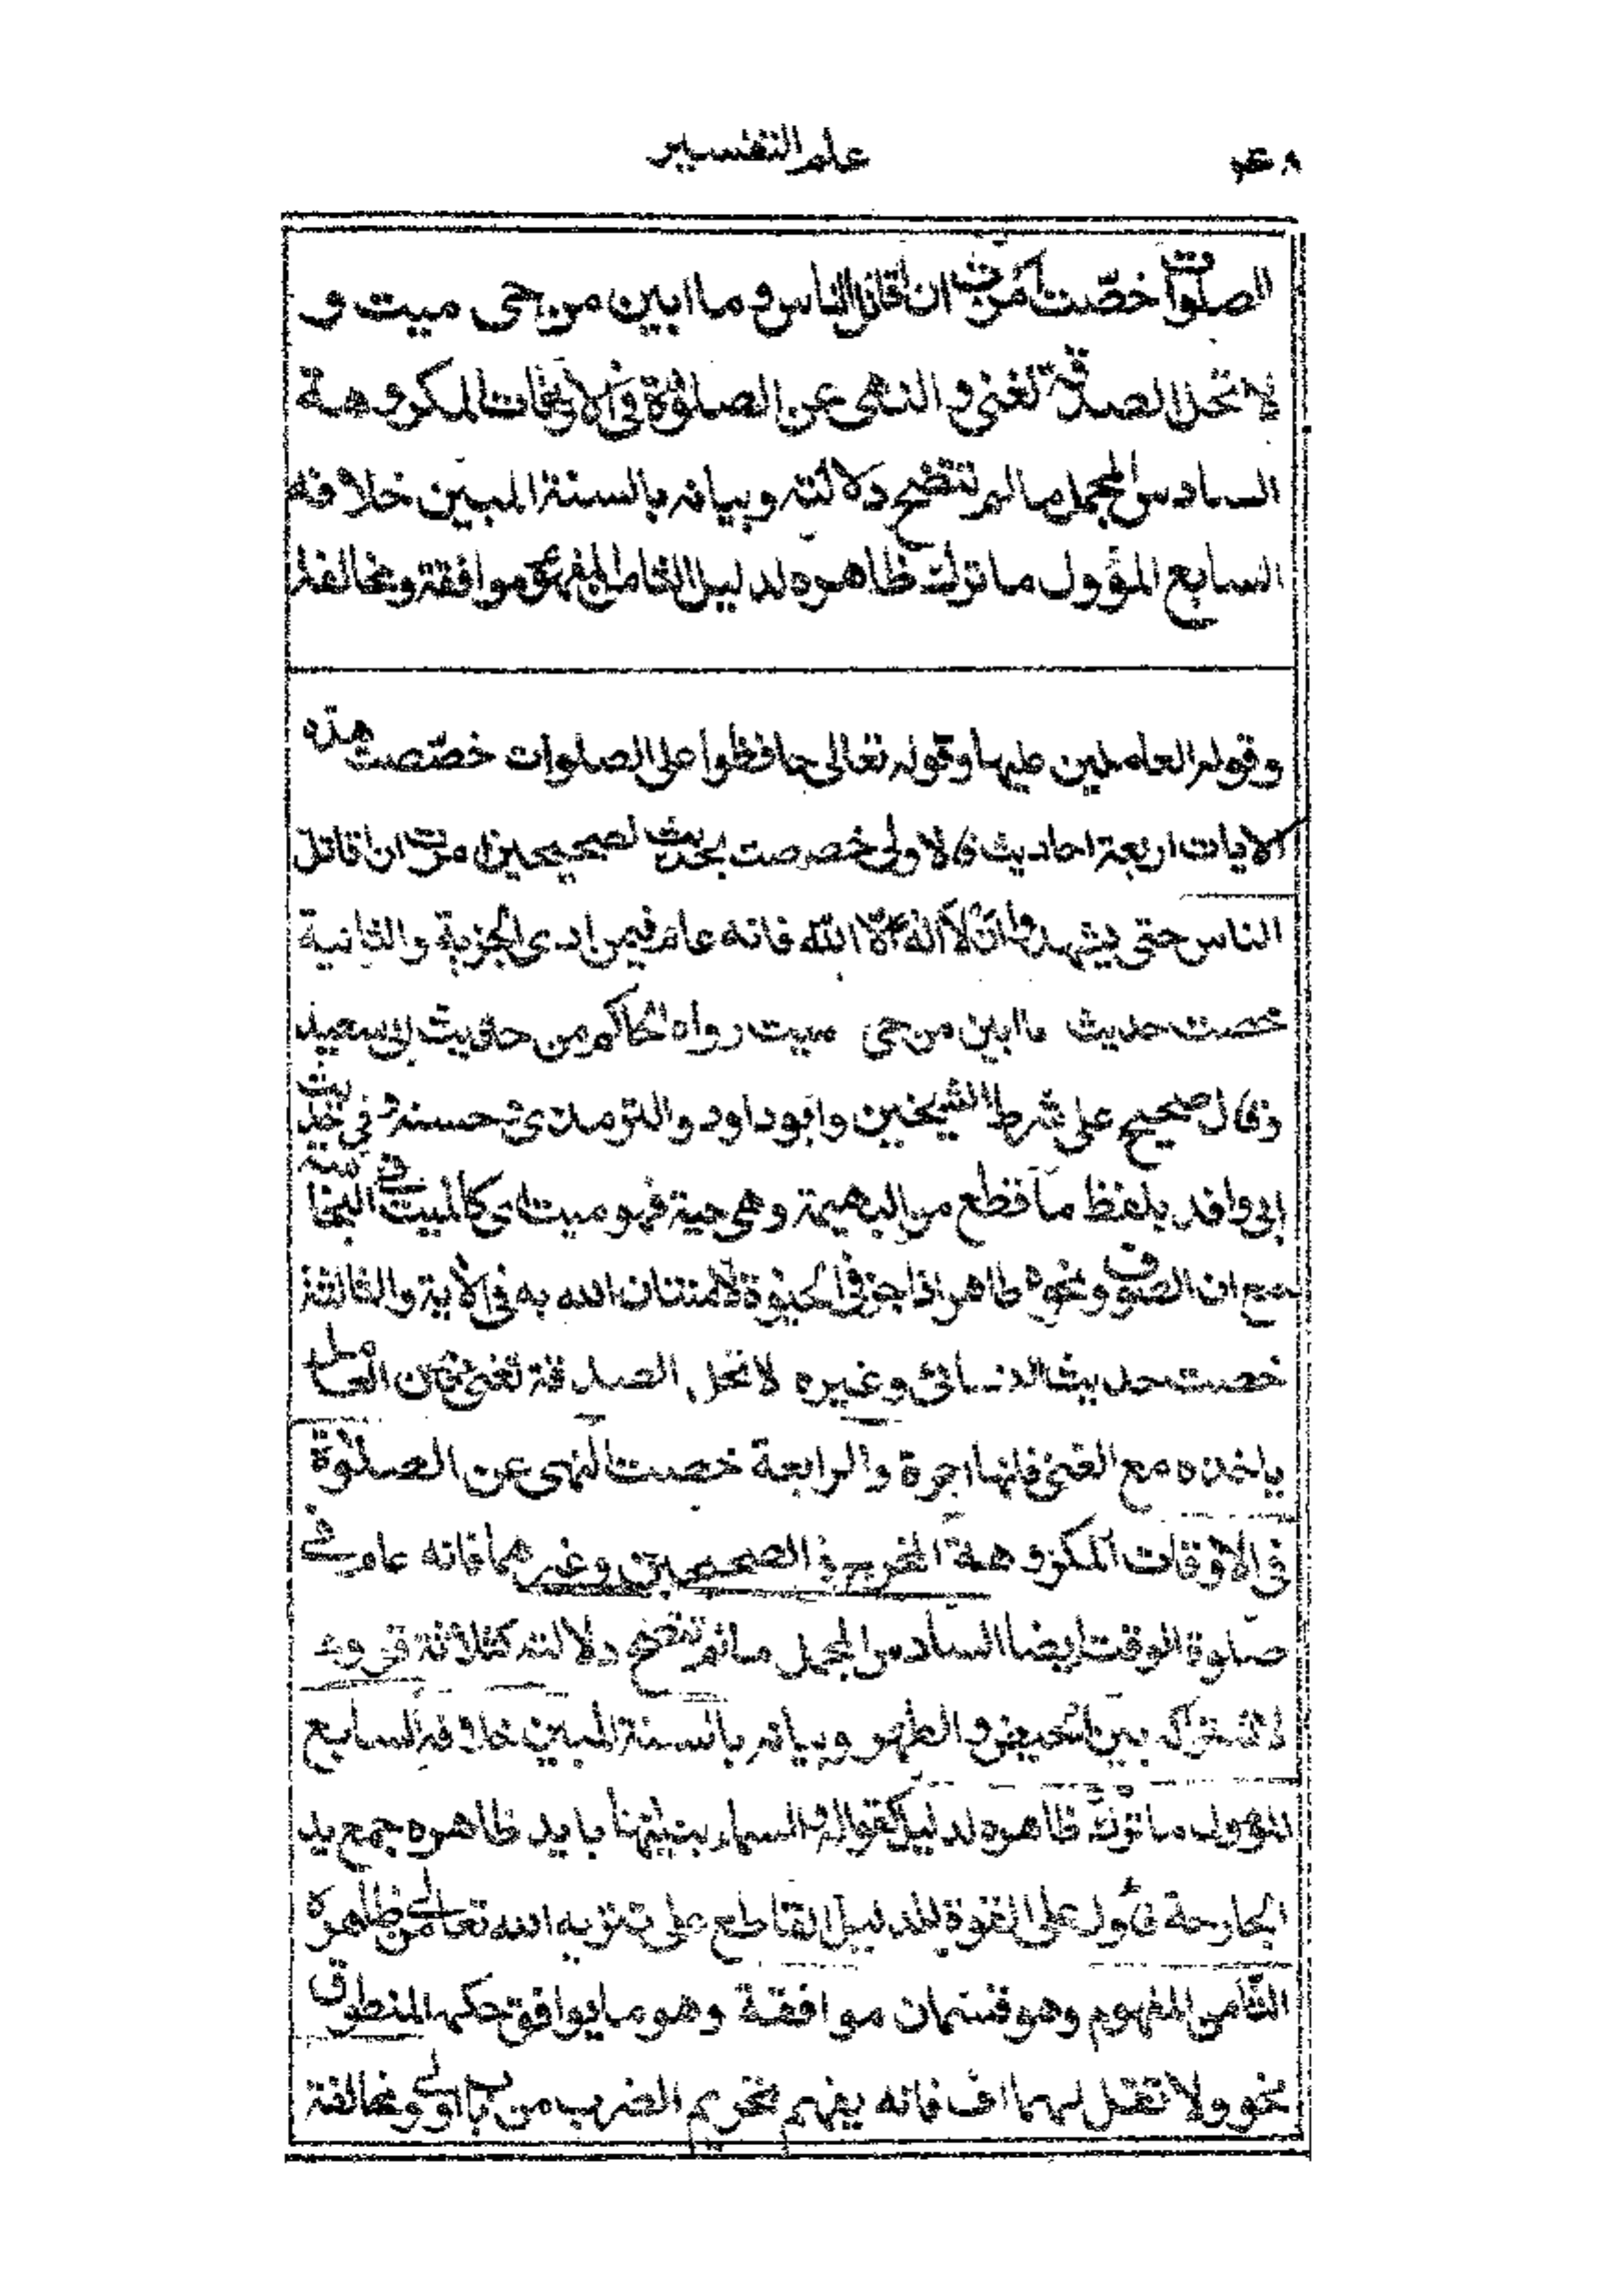 علم التفسير
الصلوات خصّت امرت ان اقاتل الناس و ما ابين من حى ميت و
لا تحل الصدقة لغنى و النهى عن الصلوٰة فى الاوقات المكروهة
السادس المجمل ما لم تتضح دلالته و بيانه بالسنة المبين خلافه
السابع المؤول ما ترك ظاهره لدليل الثامن المفهوم موافقة و مخالفة
وقوله العاملين عليها وقوله تعالى حافظوا على الصلوات خصّصت هذه
الايات اربعة احاديث فالاولى خصصت بحديث الصحيحين امرت ان اقاتل
الناس حتى يشهدوا ان لا اله الا الله فانه عام فيمن ادى الجزية والثانية
خصت حديث ما ابين من حى ميت رواه الحاكم من حديث ابى سعيد
وقال صحيح على شرط الشيخين وابو داود والترمذى و حسنه فى حديث
ابى واقد بلفظ ما قطع من البهيمة وهى حية فهو ميت اى كالميت فى النجاسة
مع ان الصوف ونحوه طاهر اذا جز فى الحيوة لامتنان الله به فى الاية والثالثة
خصت حديث النسائى وغيره لا تحل الصدقة لغنى فان العامل
ياخذه مع الغنى فانها اجرة والرابعة خصت النهى عن الصلوٰة
فى الاوقات المكروهة المخرج فى الصحيحين وغيرهما فانه عام فى
صلوة الوقت ايضا السادس المجمل ما لم تتضح دلالته كثلاثة قروء
لاشتراكه بين الحيض و الطهر وبيانه بالسنة المبين خلافه السابع
المؤول ما ترك ظاهره لدليل كقوله والسماء بنيناها بايد ظاهره جمع يد
الجارحة فاول على القوة للدليل القاطع على تنزيه الله تعالى عن ظاهره
الثامن المفهوم وهو قسمان موافقة وهو ما يوافق حكمه المنطوق
نحو ولا تقل لهما اف فانه يفهم تحريم الضرب من باب اولى و مخالفة